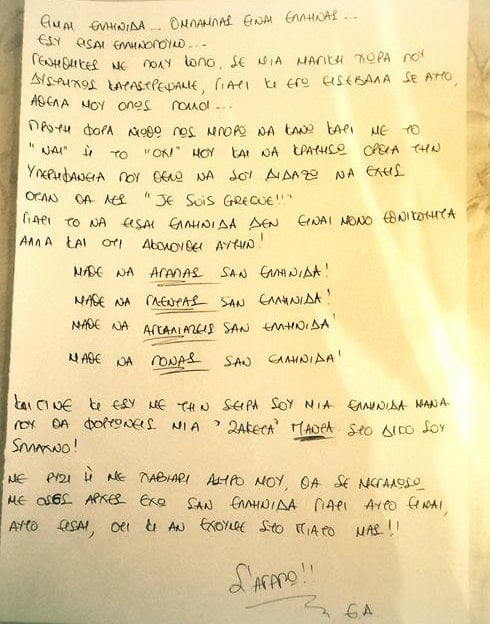 ΕΙΜΑΙ ΕΛΛΗΝΙΔΑ... Ο ΜΠΑΜΠΑΣ ΕΙΝΑΙ ΕΛΛΗΝΑΣ...
ΕΣΥ ΕΙΣΑΙ ΕΛΛΗΝΟΠΟΥΛΟ...
ΓΕΝΝΗΘΗΚΕΣ ΜΕ ΠΟΛΥ ΚΟΠΟ, ΣΕ ΜΙΑ ΜΑΓΙΚΗ ΧΩΡΑ ΠΟΥ
ΔΥΣΤΥΧΩΣ ΚΑΤΑΣΤΡΕΨΑΜΕ, ΓΙΑΤΙ ΚΙ ΕΓΩ ΕΙΣΕΒΑΛΑ ΣΕ ΑΥΤΟ,
ΑΘΕΛΑ ΜΟΥ ΟΠΩΣ ΠΟΛΛΟΙ...
ΠΡΩΤΗ ΦΟΡΑ ΝΙΩΘΩ ΠΩΣ ΜΠΟΡΩ ΝΑ ΚΑΝΩ ΚΑΤΙ ΜΕ ΤΟ
"ΝΑΙ" Ή ΤΟ "ΟΧΙ" ΜΟΥ ΚΑΙ ΝΑ ΚΡΑΤΗΣΩ ΟΡΘΙΑ ΤΗΝ
ΥΠΕΡΗΦΑΝΕΙΑ ΠΟΥ ΘΕΛΩ ΝΑ ΣΟΥ ΔΙΔΑΞΩ ΝΑ ΕΧΕΙΣ
ΟΤΑΝ ΘΑ ΛΕΣ "JE SUIS GREQUE!!"
ΓΙΑΤΙ ΤΟ ΝΑ ΕΙΣΑΙ ΕΛΛΗΝΙΔΑ ΔΕΝ ΕΙΝΑΙ ΜΟΝΟ ΕΘΝΙΚΟΤΗΤΑ
ΑΛΛΑ ΚΑΙ ΟΤΙ ΑΚΟΛΟΥΘΕΙ ΑΥΤΗΝ!
ΜΑΘΕ ΝΑ ΑΓΑΠΑΣ ΣΑΝ ΕΛΛΗΝΙΔΑ!
ΜΑΘΕ ΝΑ ΓΛΕΝΤΑΣ ΣΑΝ ΕΛΛΗΝΙΔΑ!
ΜΑΘΕ ΝΑ ΑΓΚΑΛΙΑΖΕΙΣ ΣΑΝ ΕΛΛΗΝΙΔΑ!
ΜΑΘΕ ΝΑ ΠΟΝΑΣ ΣΑΝ ΕΛΛΗΝΙΔΑ!
ΚΑΙ ΓΙΝΕ ΚΙ ΕΣΥ ΜΕ ΤΗΝ ΣΕΙΡΑ ΣΟΥ ΜΙΑ ΕΛΛΗΝΙΔΑ ΜΑΝΑ
ΠΟΥ ΘΑ ΦΟΡΤΩΝΕΙΣ ΜΙΑ "ΖΑΚΕΤΑ" ΠΑΝΤΑ ΣΤΟ ΔΙΚΟ ΣΟΥ
ΣΠΛΑΧΝΟ!
ΜΕ ΡΥΖΙ Ή ΜΕ ΧΑΒΙΑΡΙ ΑΣΤΡΟ ΜΟΥ, ΘΑ ΣΕ ΜΕΓΑΛΩΣΩ
ΜΕ ΟΣΕΣ ΑΡΧΕΣ ΕΧΩ ΣΑΝ ΕΛΛΗΝΙΔΑ ΓΙΑΤΙ ΑΥΤΟ ΕΙΜΑΙ,
ΑΥΤΟ ΕΙΣΑΙ, ΟΤΙ ΚΙ ΑΝ ΕΧΟΥΜΕ ΣΤΟ ΠΙΑΤΟ ΜΑΣ!!
Σ'ΑΓΑΠΩ!!
Ε.Α.